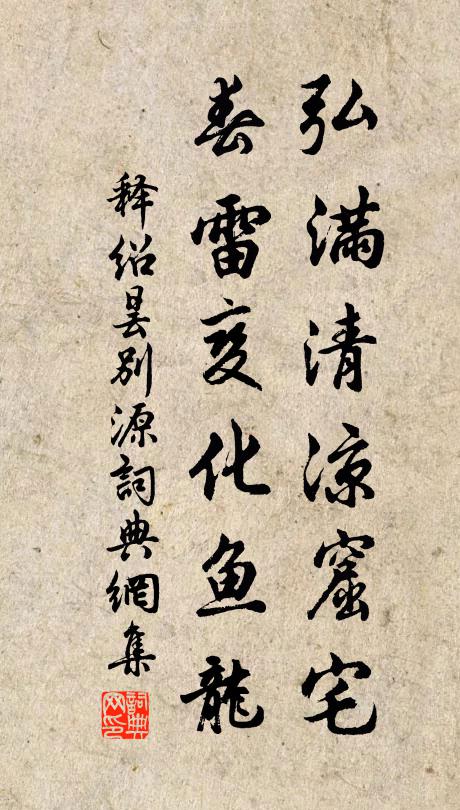 弘满清凉窟宅
春雷变化鱼龙
释绍昙别源詞典網集
詞典网印